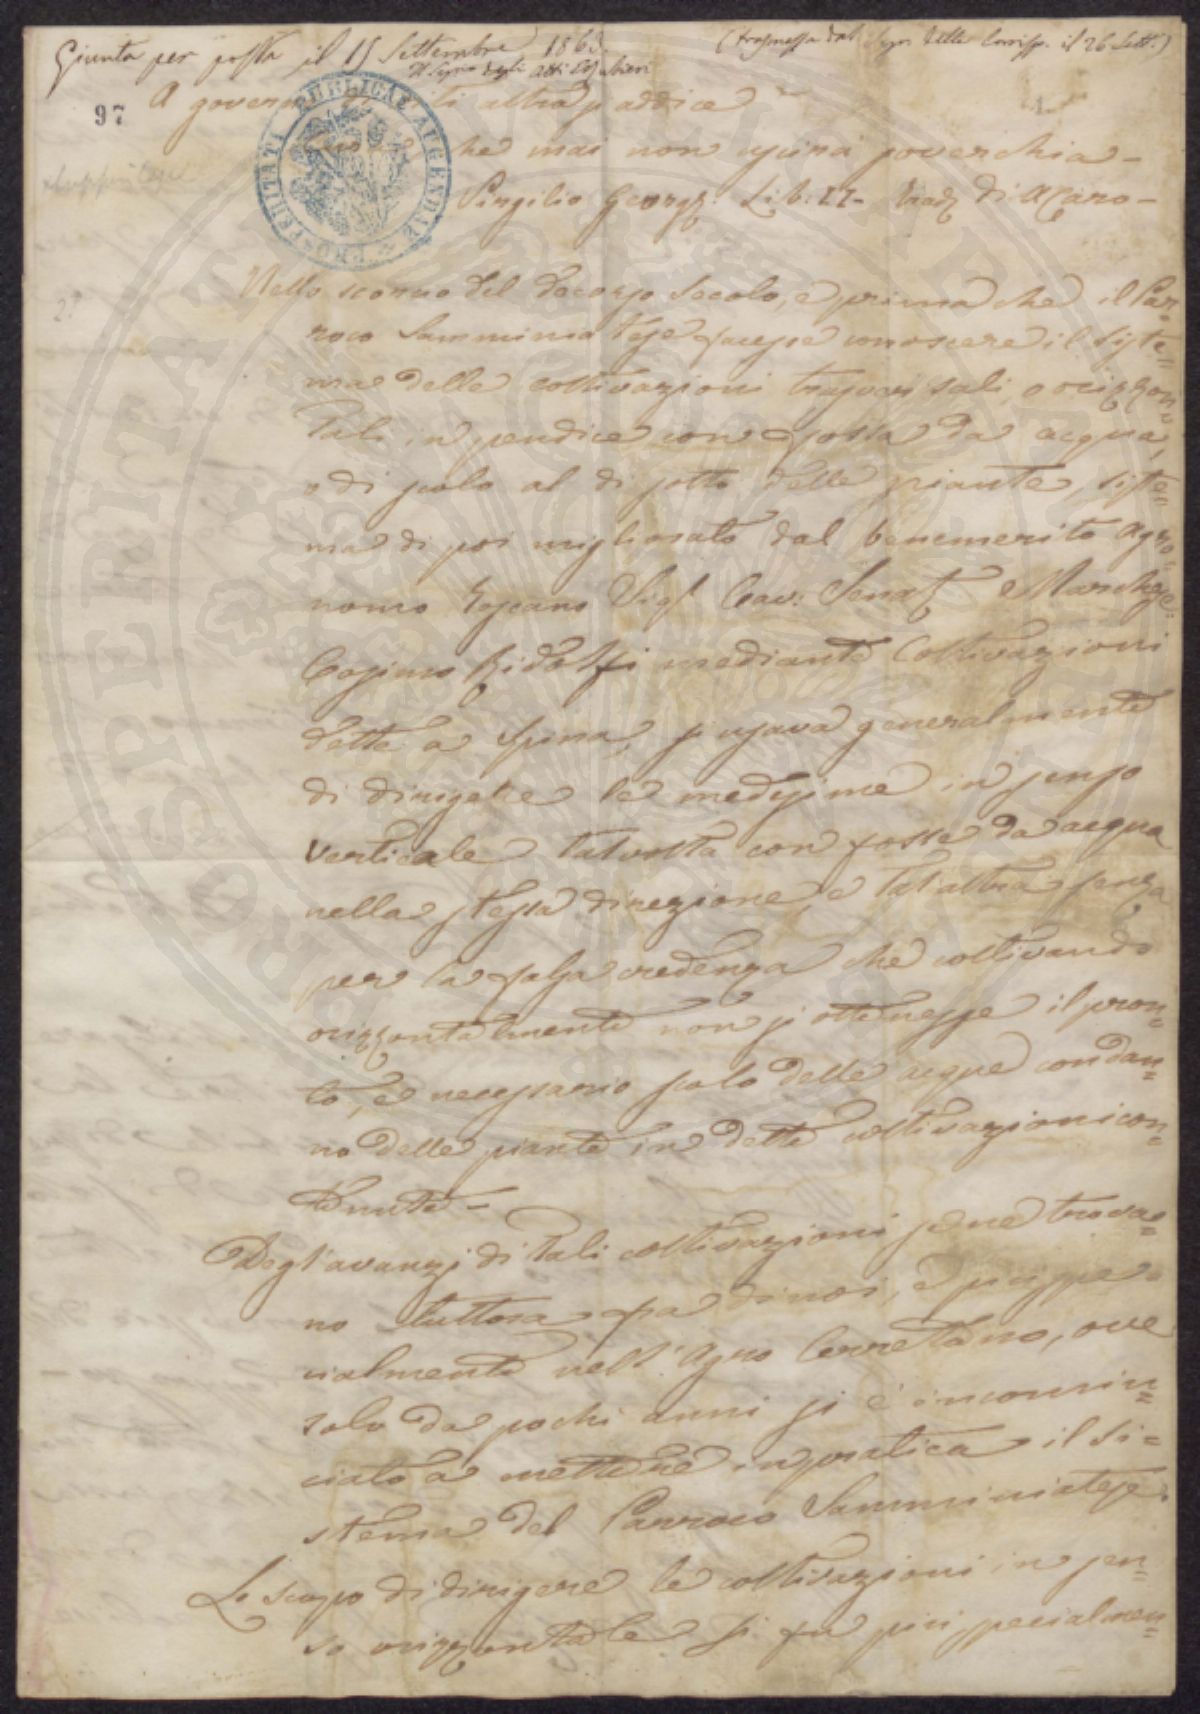 Giunta per posta il 15 Settembre 1863. (trasmessa dal Segr. delle Corrisp. il 26 Sett.)
Il Segrio degli Atti
97
A governar viti altra s'addice
che mai non opima soverchia -
Virgilio Georg. Lib: II - Trad di
PROSPERITATI PUBLICAE AUGENDAE
Nello scorcio del decorso Secolo, e prima che il Par=
roco Samminiatese facesse conoscere il siste=
ma delle coltivazioni trasversali, o orizzon=
tali in pendice con fossa da acqua,
o di scolo al di sotto delle piante, siste=
ma di poi migliorato dal benemerito agro=
nomo Toscano Sigr Cav: Senat e Marchese
Cosimo Ridolfi mediante Coltivazioni
dette a Spina, si usava generalmente
di dirigere le medesime in senso
verticale talvolta con fosse da acqua
nella stessa direzione, e tal'altra senza
per la falsa credenza che coltivando
orizzontalmente non si ottenesse il pron=
to, e necessario scolo delle acque con dan=
no delle piante in dette coltivazioni con=
tenute -
Degl'avanzi di tali coltivazioni se ne trova=
no tuttora fra di noi, e spe=
cialmente nell'Agro Cerretano, ove
solo da pochi anni si è incomin=
ciato a mettere in pratica il si=
stema del Parroco Samminiatese.
Lo scopo di dirigere le coltivazioni in sen=
so orizzontale si fu più specialmen=